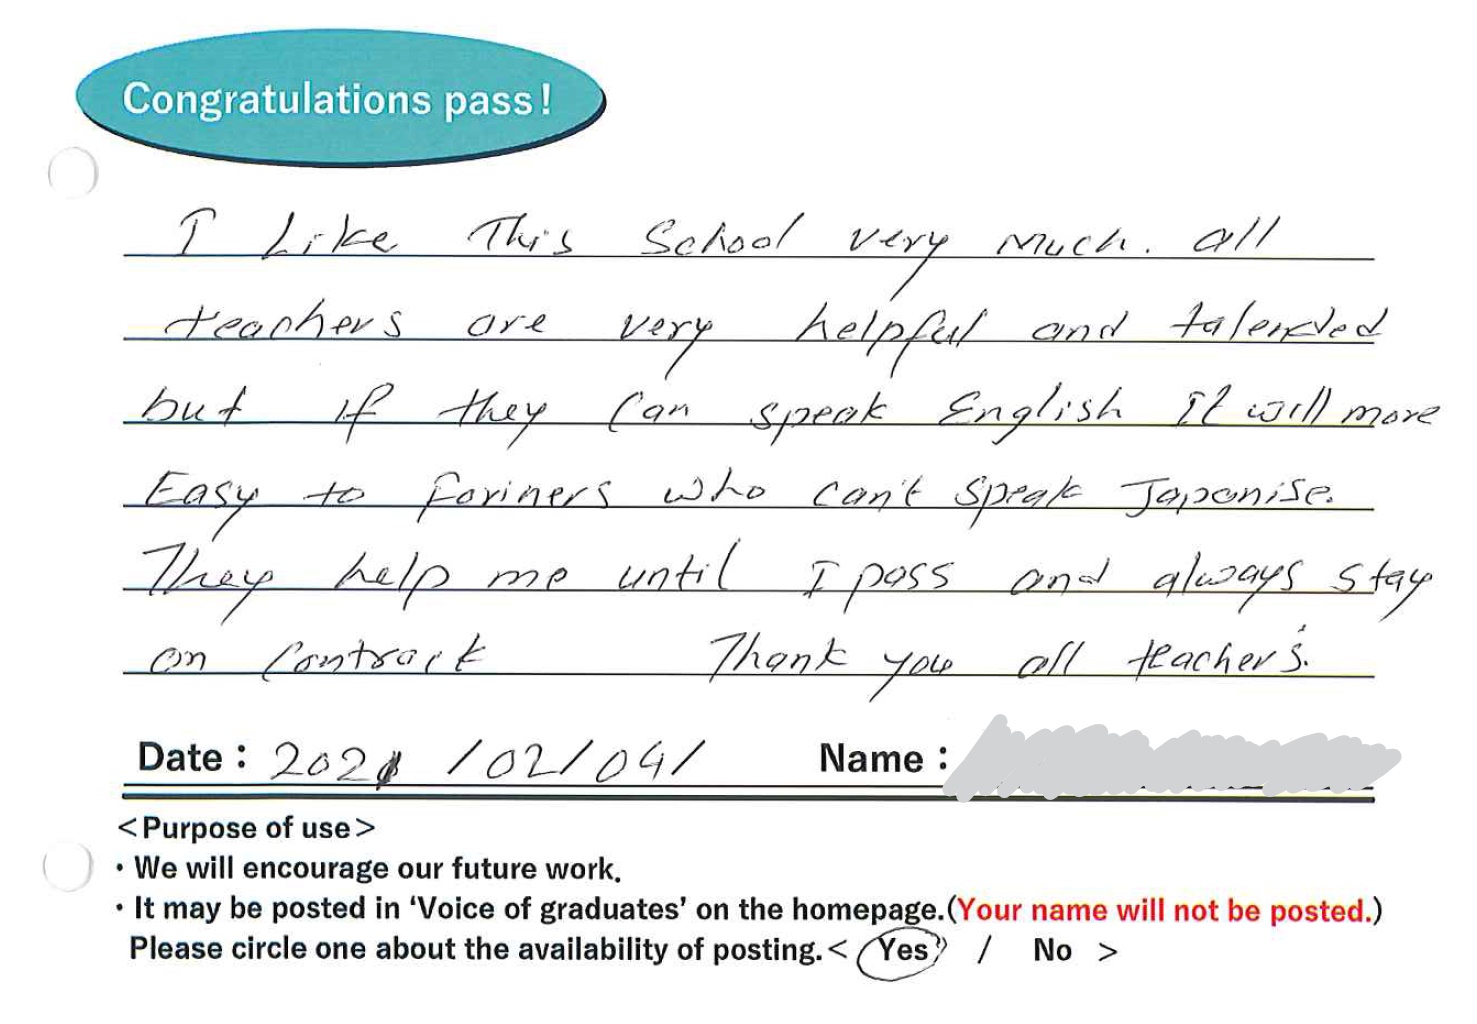 Congratulations pass!
I Like This School very much. all
teachers are very helpful and talended
but if they can speak English It will more
Easy to foriners who can't speak Japonise.
They help me until I pass and always stay
on Contrack Thank you all teacher's.
Date : 2021 /02/04/ Name :
<Purpose of use>
・We will encourage our future work.
・It may be posted in 'Voice of graduates' on the homepage.(Your name will not be posted.)
Please circle one about the availability of posting.< Yes / No >